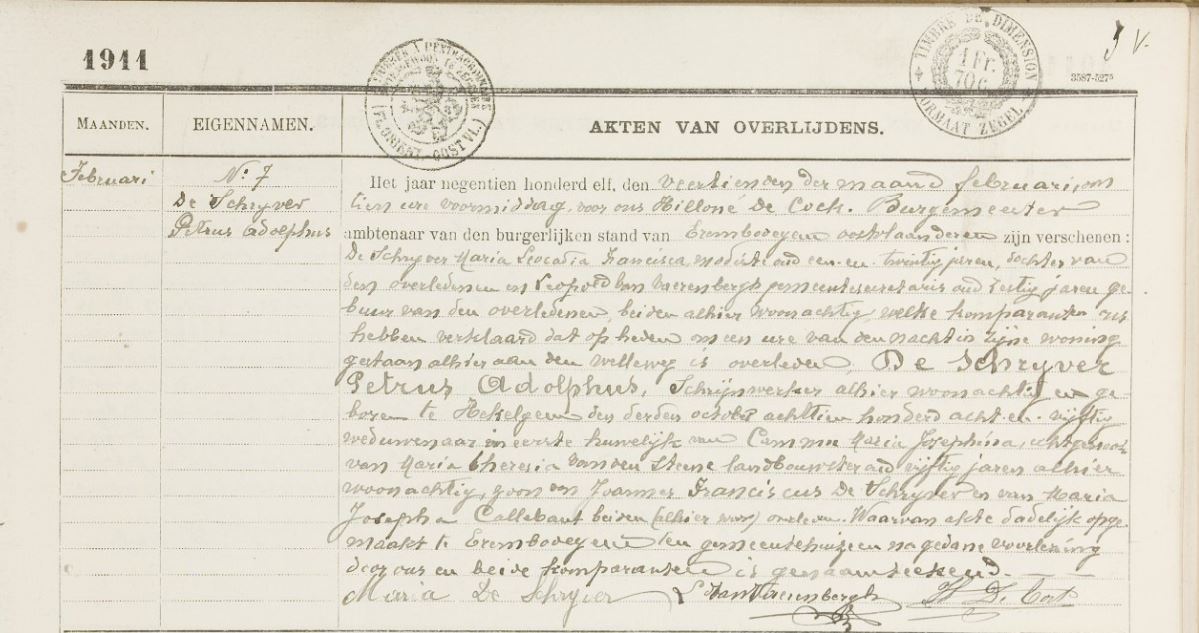 1911
TIMBRE DE DIMENSION
1 Fr.
70 C.
FORMAAT ZEGEL
3587-5275
MAANDEN.
EIGENNAMEN.
AKTEN VAN OVERLIJDENS.
Februari
N: 7
De Schryver
Petrus Adolphus
Het jaar negentien honderd elf, den veertienden der maand februari, om
tien ure voormiddag, voor ons De Cock. Burgemeester
ambtenaar van den burgerlijken stand van Erembodegem oostvlaanderen zijn verschenen :
De Schryver Maria Leocadia Francisca, modiste oud een en twintig jaren, dochter van
den overledenen en Leopold Van Vaerenbergh gemeentesecretaris oud zestig jaren ge-
buur van den overledenen, beiden alhier woonachtig, welke komparanten ons
hebben verklaard dat op heden om een ure van den nacht in zijne woning
gestaan alhier aan den welleweg is overleden, De Schryver
Petrus Adolphus, Schrijnwerker alhier woonachtig en ge-
boren te Hekelgem den derden october achttien honderd acht en vijftig
weduwenaar in eerste huwelijk van Maria Josephina, echtgenoot
van Maria Theresia Van den Steene landbouwster oud vijftig jaren alhier
woonachtig, zoon van Joannes Franciscus De Schryver en van Maria
Josepha Callebaut beiden (alhier woon) overleden. Waarvan akte dadelijk opge-
maakt te Erembodegem ten gemeentehuize en na gedane voorlezing
door ons en beide komparanten is genaamteekend.
Maria De Schryver L Van Vaerenbergh H De Cock